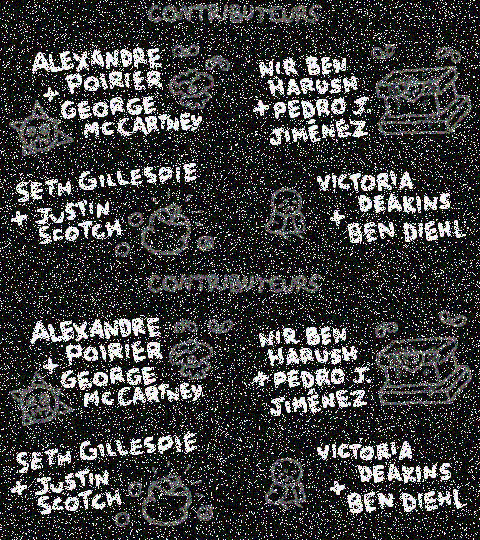 CONTRIBUTEURS
ALEXANDRE
POIRIER
+ GEORGE
MCCARTNEY
NIR BEN
HARUSH
+ PEDRO J.
JIMÉNEZ
SETH GILLESPIE
+ JUSTIN
SCOTCH
VICTORIA
DEAKINS
+
BEN DIEHL
CONTRIBUTEURS
ALEXANDRE
POIRIER
+ GEORGE
MCCARTNEY
NIR BEN
HARUSH
+ PEDRO J.
JIMÉNEZ
SETH GILLESPIE
+ JUSTIN
SCOTCH
VICTORIA
DEAKINS
+
BEN DIEHL